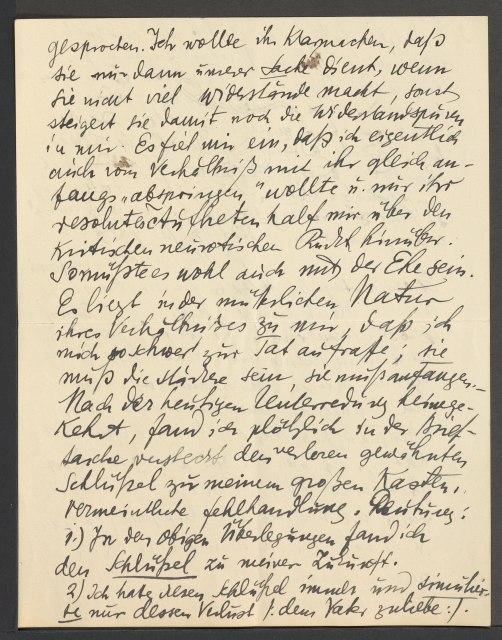 gesprochen. Ich wollte ihr klarmachen, daß
sie nur dann unserer Sache dient, wenn
sie nicht viel Widerstände macht, sonst
steigert sie damit noch die Widerstandspuren
in mir. Es fiel mir ein, daß ich eigentlich
auch vom Verhältniß mit ihr gleich an-
fangs „abspringen“ wollte u. nur ihr
resolutes Auftreten half mir über den
kritischen neurotischen hinüber.
So müßte es wohl auch mit der Ehe sein.
Es liegt in der mütterlichen Natur
ihres Verhältnißes zu mir, daß ich
mich so schwer zur Tat aufraffe; sie
muß die Stärkere sein, sie muß anfangen.
Nach der heutigen Unterredung heimge-
kehrt, fand ich plötzlich in der Brief-
tasche versteckt den verloren gewähnten
Schlüßel zu meinem großen Kasten.
Vermeintliche Fehlhandlung. Deutung:
1.) In den obigen Überlegungen fand ich
den Schlüßel zu meiner Zukunft.
2) Ich hatte diesen Schlüßel immer und simulier-
te nur dessen Verlust /: dem Vater zuliebe :/.